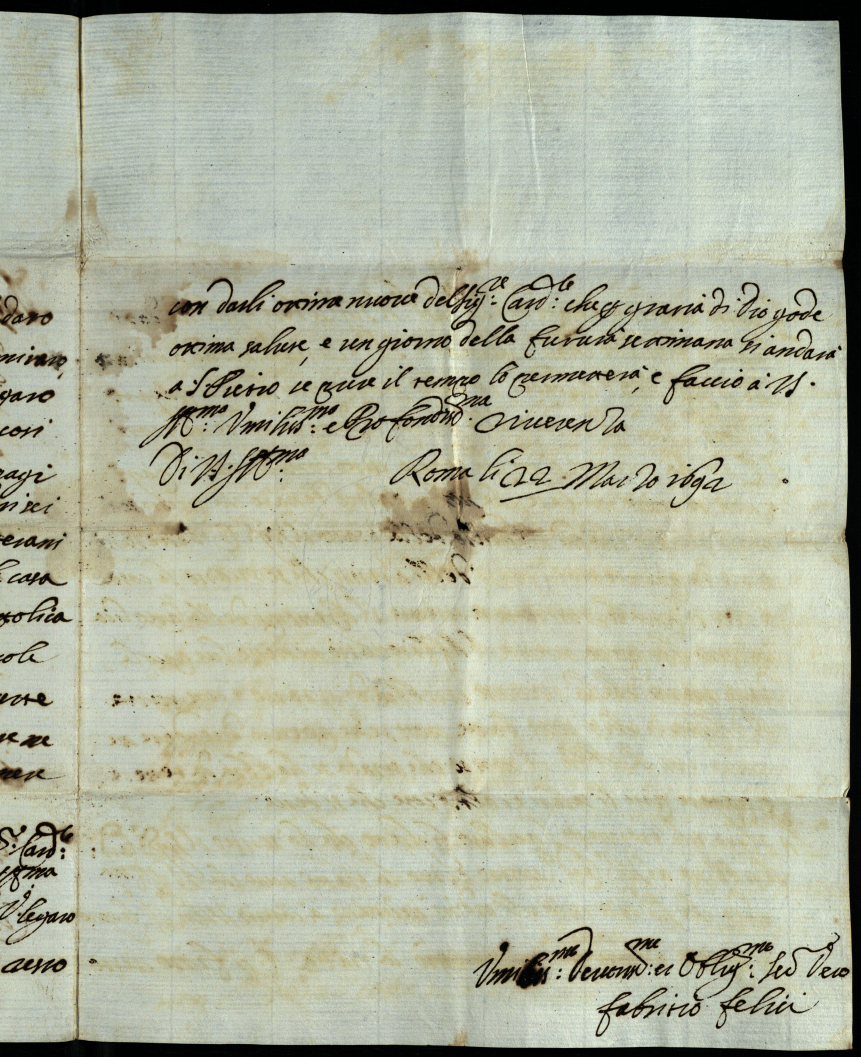 daro
mirato
garo
cosi
ragi
nisei
terani
casa
ttolica
cole
nere
Card:le
legaro
con darli ottima nuova del Sig:re Card:le che p gratia di Dio gode
ottima salute, e un giorno della futura settimana si andarà
a S Pietro se pure il tempo lo permetterà, e faccio à V.
Ill:ma Umiliss:mo e Profondiss:ma riverenza
Di V. Ill:ma Roma li 22 Marzo 1692
Umiliss:mo Devotiss:mo et Oblig:mo Ser Vero
fabritio felici